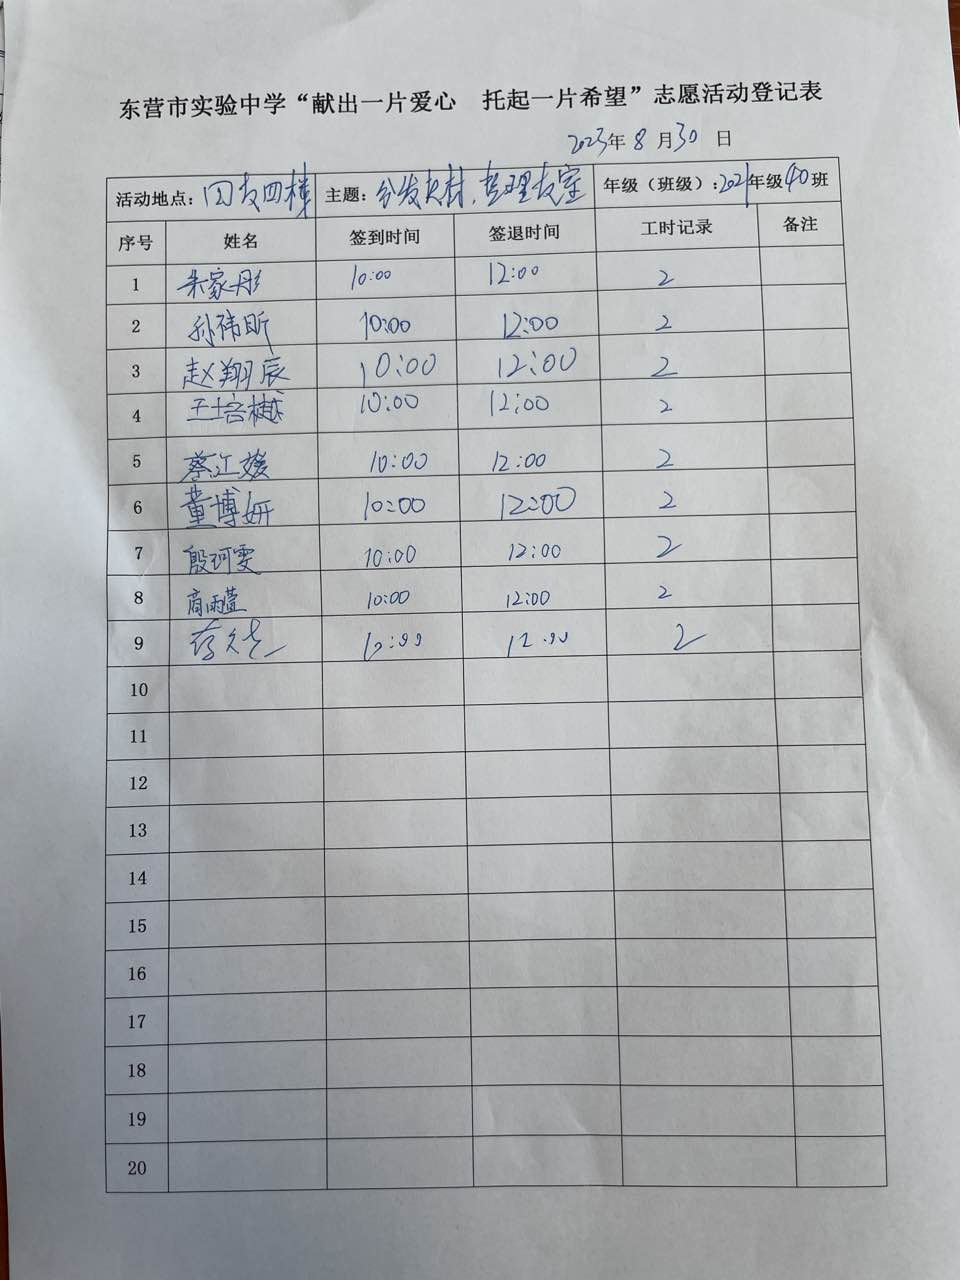 东营市实验中学“献出一片爱心 托起一片希望”志愿活动登记表
2023年8月30日
活动地点： 四 四楼 主题：分发教材，整理 室 年级（班级）：2021年级40班
序号 姓名 签到时间 签退时间 工时记录 备注
1 朱家彤 10:00 12:00 2
2 孙祎昕 10:00 12:00 2
3 赵翔辰 10:00 12:00 2
4 王培樾 10:00 12:00 2
5 蔡江媛 10:00 12:00 2
6 董博妍 10:00 12:00 2
7 殷珂雯 10:00 12:00 2
8 商雨萱 10:00 12:00 2
9 10:00 12:00 2
10
11
12
13
14
15
16
17
18
19
20